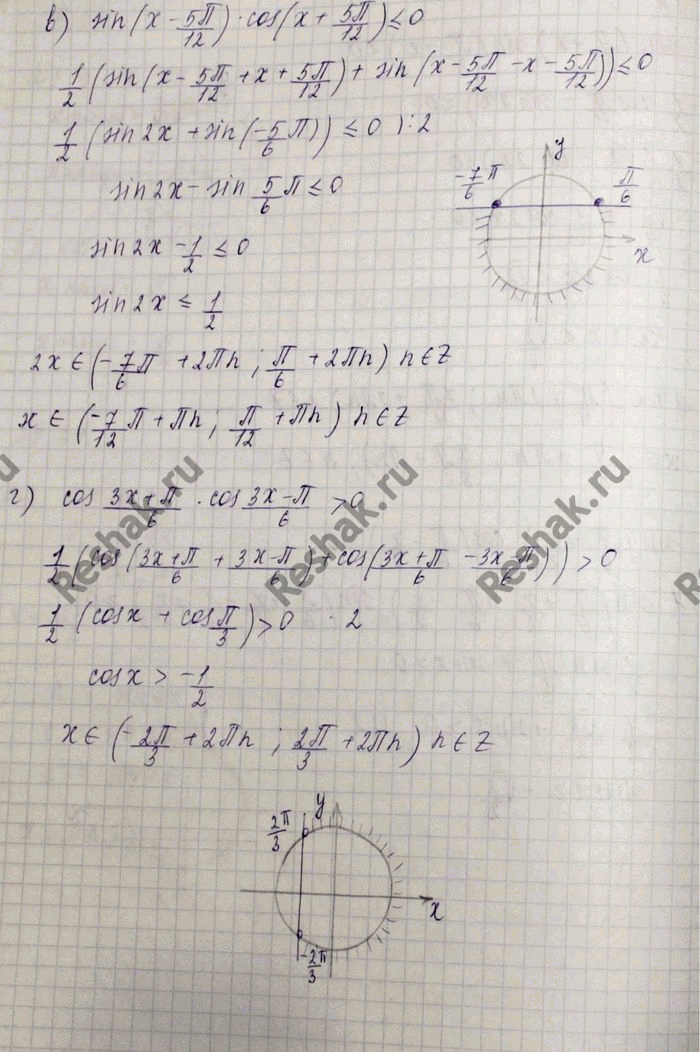 в) sin(x - 5π/12) · cos(x + 5π/12) ≤ 0
1/2 (sin(x - 5π/12 + x + 5π/12) + sin(x - 5π/12 - x - 5π/12)) ≤ 0
1/2 (sin 2x + sin(-5/6 π)) ≤ 0 ) : 2
sin 2x - sin 5/6 π ≤ 0
sin 2x - 1/2 ≤ 0
sin 2x ≤ 1/2
y
-7/6 π
π/6
x
2x ∈ (-7/6 π + 2πn ; π/6 + 2πn) n ∈ Z
x ∈ (-7/12 π + πn ; π/12 + πn) n ∈ Z
г) cos (3x+π)/6 · cos (3x-π)/6 > 0
1/2 (cos((3x+π)/6 + (3x-π)/6) + cos((3x+π)/6 - (3x-π)/6)) > 0
1/2 (cos x + cos π/3) > 0 · 2
cos x > -1/2
x ∈ (-2π/3 + 2πn ; 2π/3 + 2πn) n ∈ Z
y
2π/3
x
-2π/3
Reshak.ru
Reshak.ru
Reshak.ru